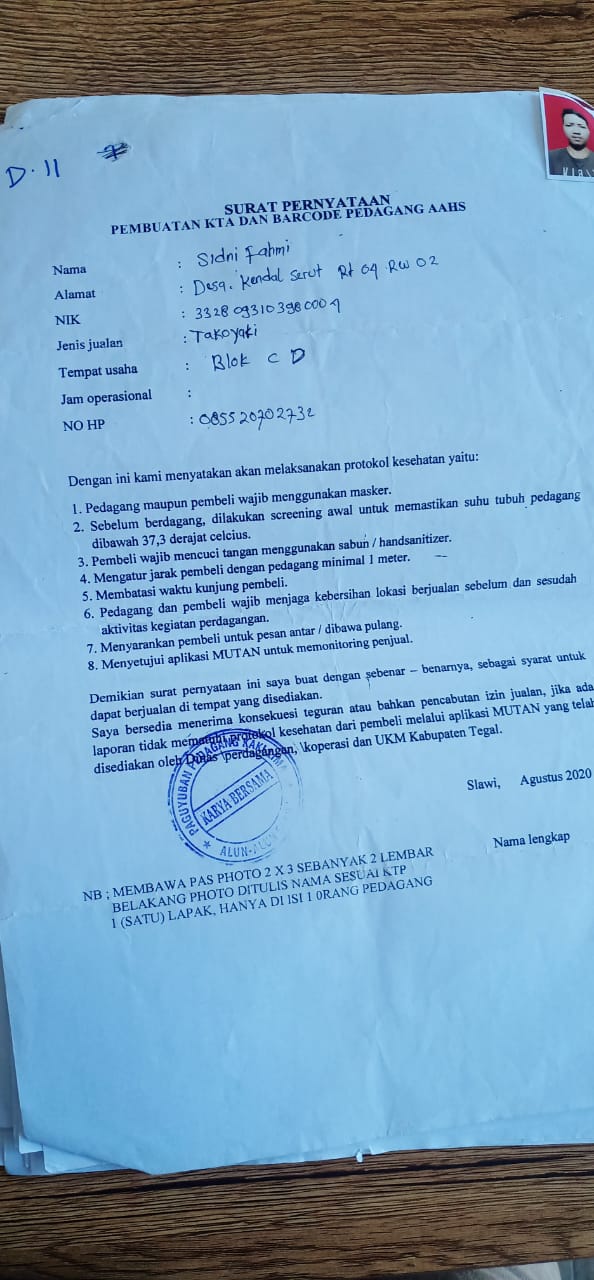 D.11
SURAT PERNYATAAN
PEMBUATAN KTA DAN BARCODE PEDAGANG AAHS
Nama : Sidni Fahmi
Alamat : Desa. Kendal Serut Rt 04 RW 02
NIK : 3328093103980004
Jenis jualan : Takoyaki
Tempat usaha : Blok C D
Jam operasional :
NO HP : 085520702732
Dengan ini kami menyatakan akan melaksanakan protokol kesehatan yaitu:
1. Pedagang maupun pembeli wajib menggunakan masker.
2. Sebelum berdagang, dilakukan screening awal untuk memastikan suhu tubuh pedagang
dibawah 37,3 derajat celcius.
3. Pembeli wajib mencuci tangan menggunakan sabun / handsanitizer.
4. Mengatur jarak pembeli dengan pedagang minimal 1 meter.
5. Membatasi waktu kunjung pembeli.
6. Pedagang dan pembeli wajib menjaga kebersihan lokasi berjualan sebelum dan sesudah
aktivitas kegiatan perdagangan.
7. Menyarankan pembeli untuk pesan antar / dibawa pulang.
8. Menyetujui aplikasi MUTAN untuk memonitoring penjual.
Demikian surat pernyataan ini saya buat dengan sebenar – benarnya, sebagai syarat untuk
dapat berjualan di tempat yang disediakan.
Saya bersedia menerima konsekuesi teguran atau bahkan pencabutan izin jualan, jika ada
laporan tidak mematuhi protokol kesehatan dari pembeli melalui aplikasi MUTAN yang telah
disediakan oleh Dinas \perdagangan, \koperasi dan UKM Kabupaten Tegal.
PAGUYUBAN PEDAGANG KAKI LIMA
KARYA BERSAMA
ALUN-ALUN
Slawi, Agustus 2020
Nama lengkap
NB ; MEMBAWA PAS PHOTO 2 X 3 SEBANYAK 2 LEMBAR
BELAKANG PHOTO DITULIS NAMA SESUAI KTP
1 (SATU) LAPAK, HANYA DI ISI 1 0RANG PEDAGANG